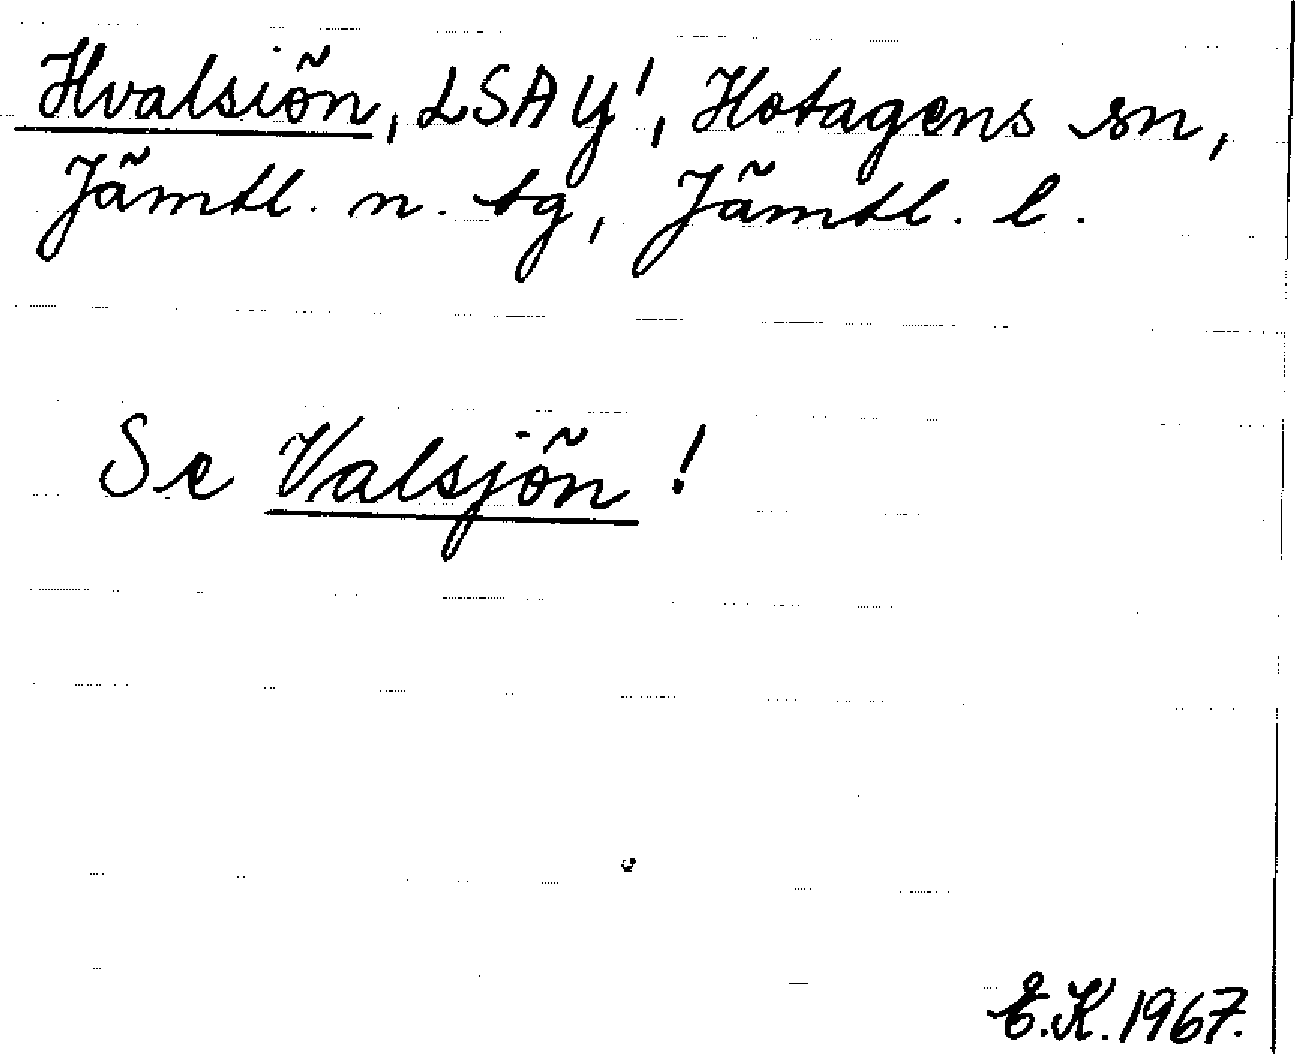 Hvalsiön, LSAY!, Hotagens sn,
Jämtl. n. tg, Jämtl. l.
Se Valsjön!
E.K. 1967.